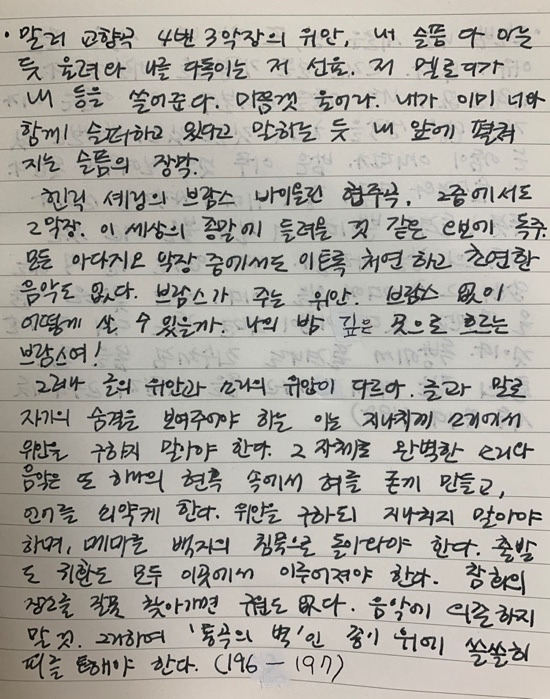 · 말러 교향곡 4번 3악장의 위안, 내 슬픔 다 아는
듯 울려와 나를 다독이는 저 선율. 저 멜로디가
내 등을 쓸어준다. 마음껏 울어라. 내가 이미 너와
함께 슬퍼하고 있다고 말하는 듯 내 앞에 펼쳐
지는 슬픔의 장막.
헨릭 셰링의 브람스 바이올린 협주곡. 그중에서도
2악장. 이 세상의 종말에 들려올 것 같은 오보에 독주.
모든 아다지오 악장 중에서도 이토록 처연하고 초연한
음악도 없다. 브람스가 주는 위안. 브람스 없이
어떻게 살 수 있을까. 나의 밤 깊은 곳으로 흐르는
브람스여!
그러나 글의 위안과 소리의 위안이 다르다. 글과 말로
자기의 숨결을 보여주어야 하는 이는 지나치게 소리에서
위안을 구하지 말아야 한다. 그 자체로 완벽한 소리와
음악은 또 하나의 현혹 속에서 혀를 굳게 만들고,
언어를 쇠약케 한다. 위안을 구하되 지나치지 말아야
하며, 매마른 백지의 침묵으로 돌아와야 한다. 출발
도 귀환도 모두 이곳에서 이루어져야 한다. 참회의
장소를 잘못 찾아가면 구원도 없다. 음악에 의존하지
말 것. 그리하여 '통곡의 벽'인 종이 위에 쓸쓸히
피를 토해야 한다. (196 - 197)